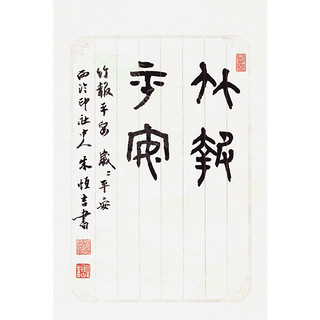 竹報
平安
竹報平安 歲々平安
西泠印社中人 朱恒吉書